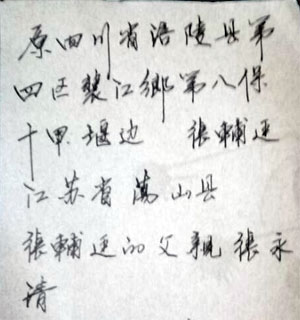 原四川省涪陵县第
四区裴江鄉第八保
十甲堰边 張輔廷
江苏省萬山县
張輔廷的父親張永
清